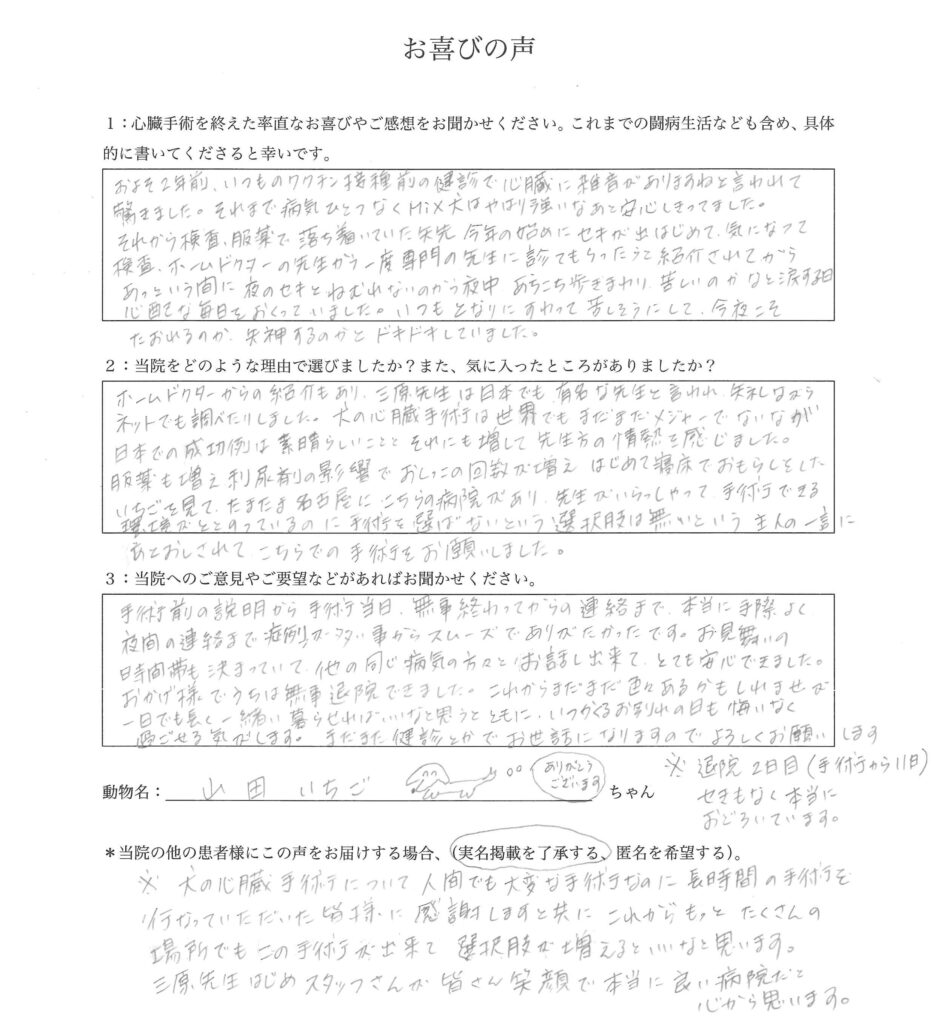 お喜びの声
1：心臓手術を終えた率直なお喜びやご感想をお聞かせください。これまでの闘病生活なども含め、具体
的に書いてくださると幸いです。
およそ2年前、いつものワクチン接種前の健診で心臓に雑音がありますねと言われて
驚きました。それまで病気ひとつなくMIX犬はやはり強いなあと安心しきってました。
それから検査、服薬で落ち着いていた矢先 今年の始めにセキが出はじめて、気になって
検査、ホームドクターの先生から一度専門の先生に診てもらったらと紹介されてから
あっという間に夜のセキとねむれないのから夜中 あちこち歩きまわり、苦しいのかなと涙する日
心配な毎日をおくっていました。いつもとなりにすわって苦しそうにして、今夜こそ
たおれるのか、失神するのかとドキドキしていました。
2：当院をどのような理由で選びましたか？また、気に入ったところがありましたか？
ホームドクターからの紹介もあり、三原先生は日本でも有名な先生と言われ、失礼ながら
ネットでも調べたりしました。犬の心臓手術は世界でもまだまだメジャーでないながが
日本での成功例は素晴らしいことと それにも増して先生方の情熱を感じました。
服薬も増え利尿剤の影響でおしっこの回数が増え はじめて寝床でおもらしをした
いちごを見て、たまたま名古屋にこちらの病院があり、先生がいらっしゃって、手術できる
環境がととのっているのに手術を選ばないという選択肢は無いという主人の一言に
あとおしされてこちらでの手術をお願いしました。
3：当院へのご意見やご要望などがあればお聞かせください。
手術前の説明から手術当日、無事終わってからの連絡まで、本当に手際よく
夜間の連絡まで症例が多い事からスムーズでありがたかったです。お見舞いの
日時間帯も決まっていて、他の同じ病気の方々とお話し出来て、とても安心できました。
おかげ様でうちは無事退院できました。これからまだまだ色々あるかもしれませが
一日でも長く一緒に暮らせればいいなと思うとともに、いつかくるお別れの日も悔いなく
過ごせる気がします。まだまた健診とかでお世話になりますのでよろしくお願いします
※退院2日目(手術から11日)
せきもなく本当に
おどろいています。
動物名：山田 いちご ありがとうございます ちゃん
＊当院の他の患者様にこの声をお届けする場合、（実名掲載を了承する、匿名を希望する）。
※ 犬の心臓手術について 人間でも大変な手術なのに長時間の手術を
行なっていただいた皆様に感謝しますと共に これからもっと たくさんの
場所でもこの手術が出来て 選択肢が増えるといいなと思います。
三原先生はじめスタッフさんが皆さん笑顔で本当に良い病院だと
心から思います。